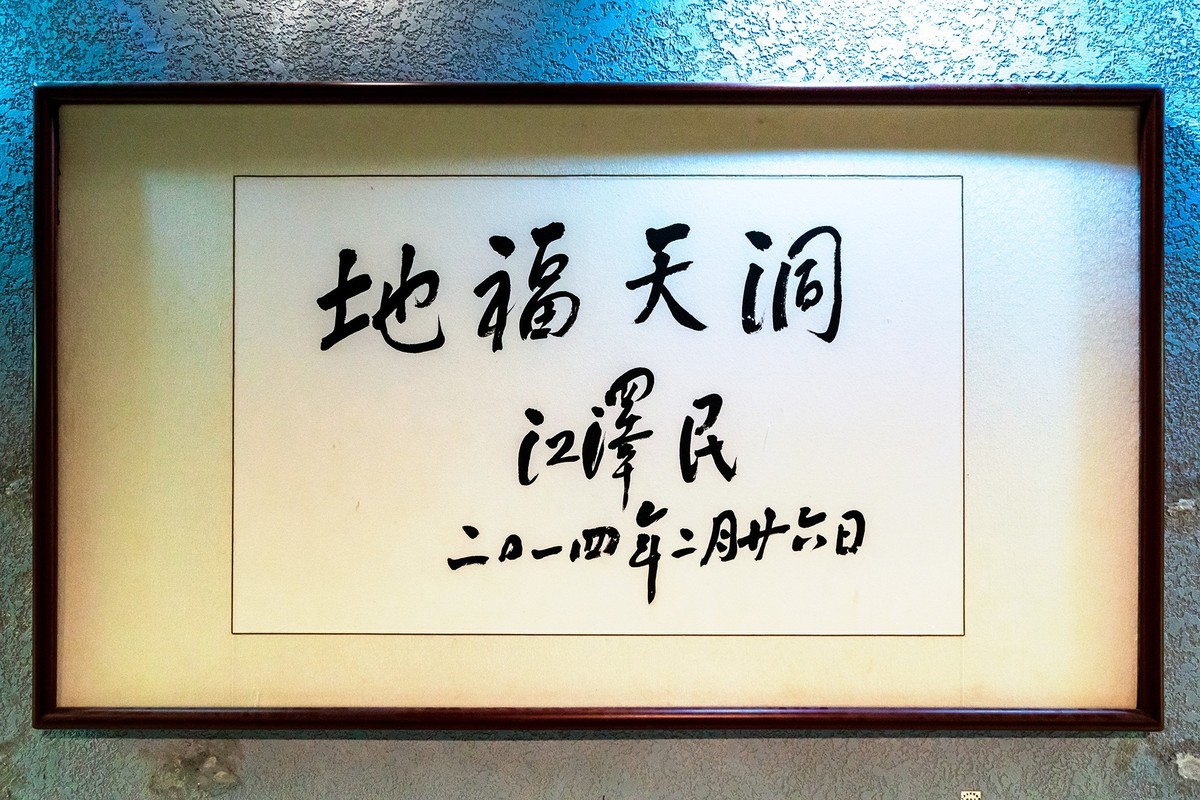 地福天洞
江澤民
二〇一四年二月廿六日